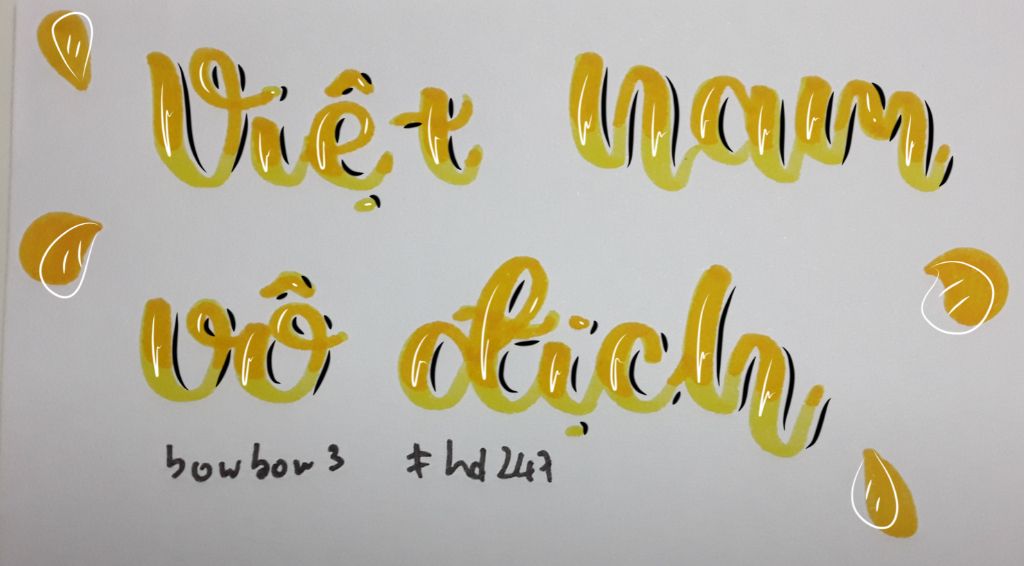 Việt nam
vô địch
bowbow3 #hd247